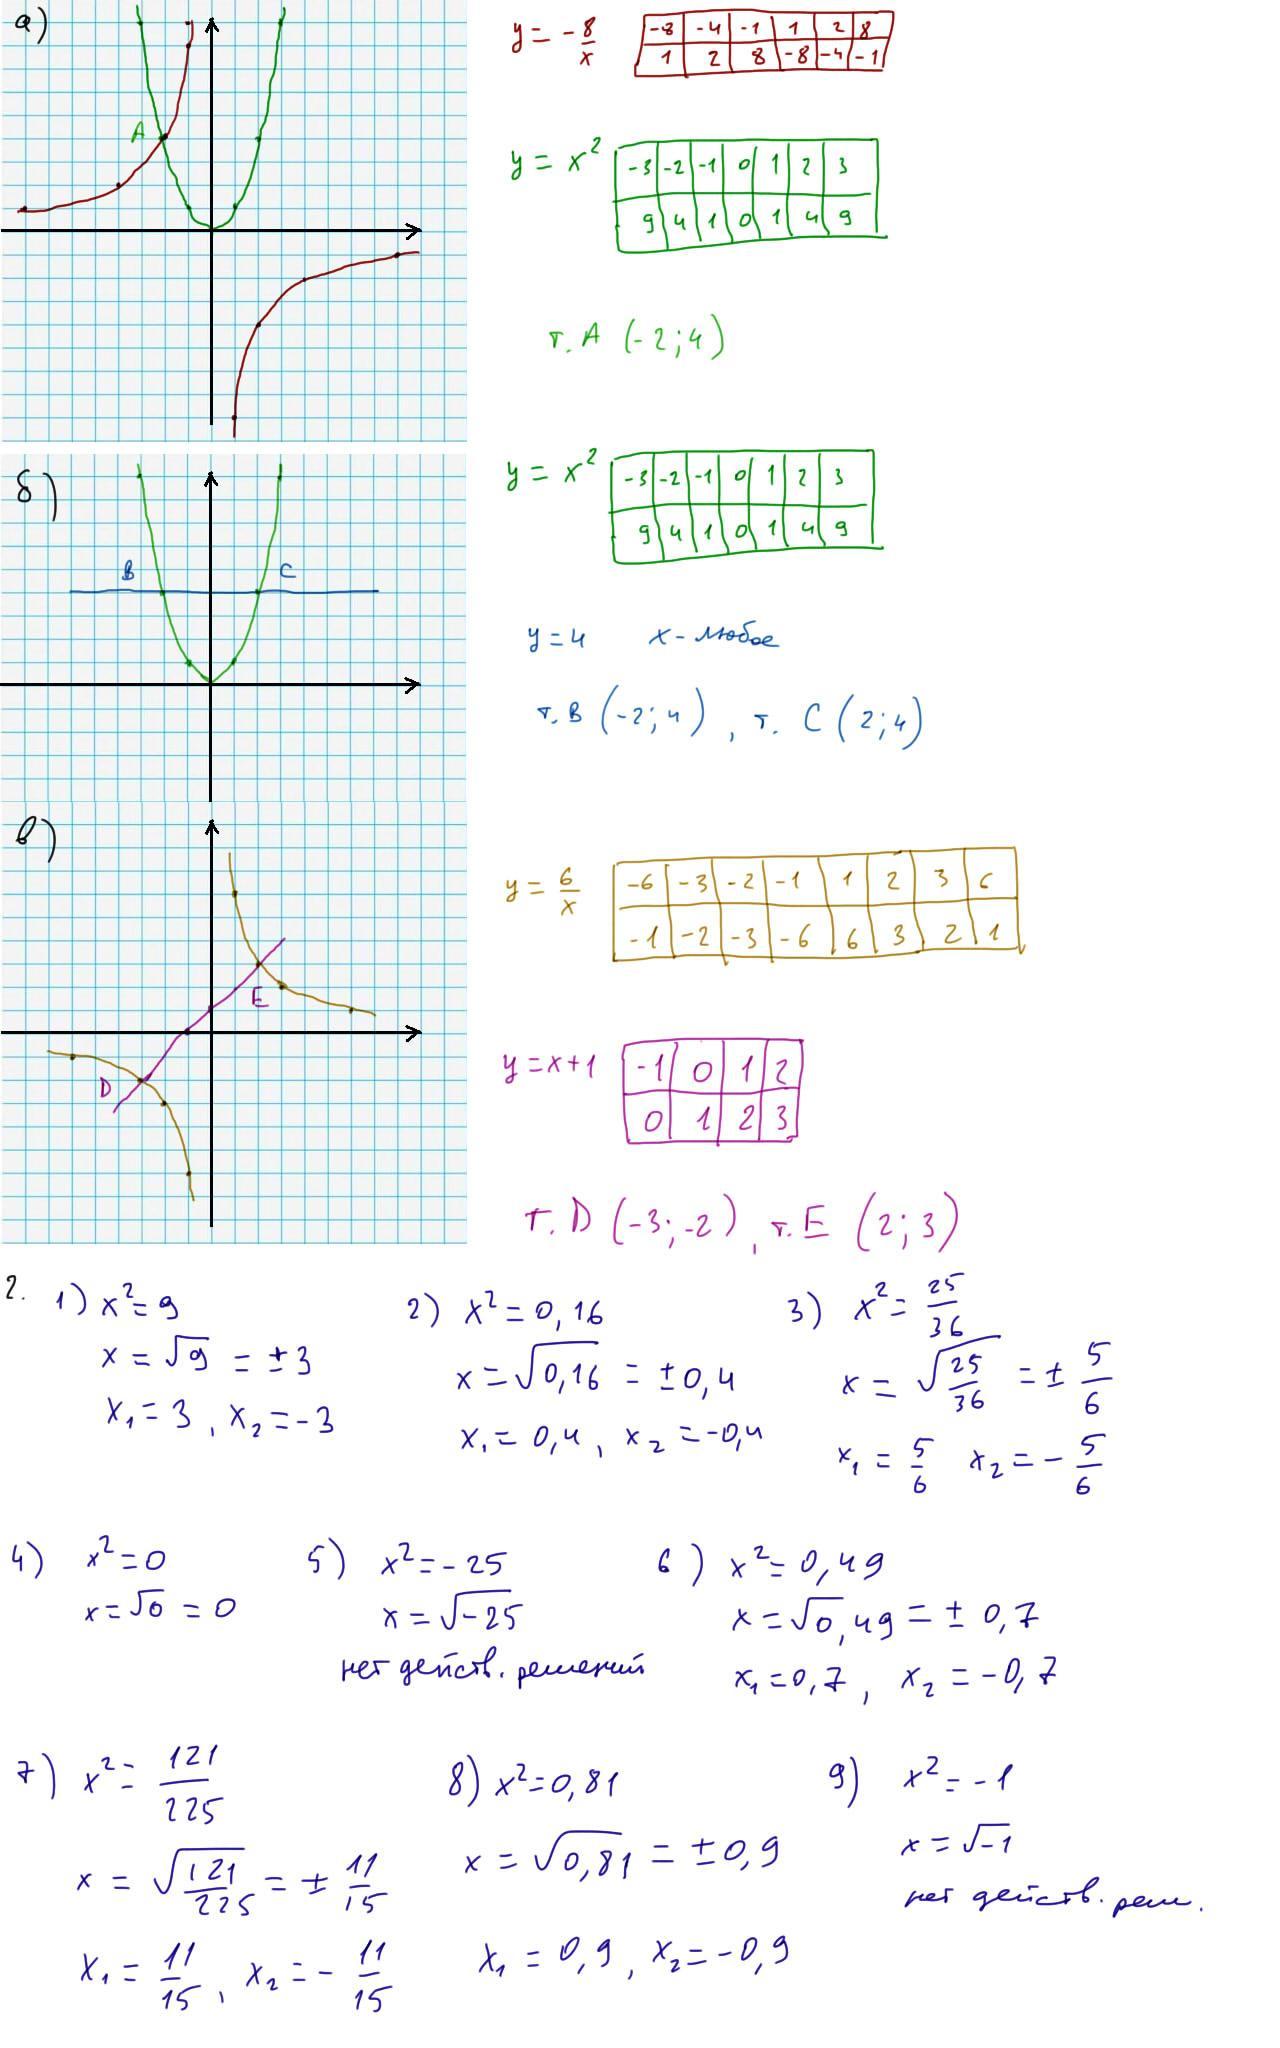 а)
y = - 8/x
-8 -4 -1 1 2 8
1 2 8 -8 -4 -1
A
y = x²
-3 -2 -1 0 1 2 3
9 4 1 0 1 4 9
т. A (-2; 4)
б)
y = x²
-3 -2 -1 0 1 2 3
9 4 1 0 1 4 9
B C
y = 4 x - любое
т. B (-2; 4), т. C (2; 4)
в)
y = 6/x
-6 -3 -2 -1 1 2 3 6
-1 -2 -3 -6 6 3 2 1
E
D
y = x+1
-1 0 1 2
0 1 2 3
т. D (-3; -2), т. E (2; 3)
2. 1) x² = 9
x = √9 = ±3
x₁ = 3, x₂ = -3
2) x² = 0,16
x = √0,16 = ±0,4
x₁ = 0,4, x₂ = -0,4
3) x² = 25/36
x = √25/36 = ± 5/6
x₁ = 5/6 x₂ = - 5/6
4) x² = 0
x = √0 = 0
5) x² = -25
x = √-25
нет действ. решений
6) x² = 0,49
x = √0,49 = ± 0,7
x₁ = 0,7, x₂ = -0,7
7) x² = 121/225
x = √121/225 = ± 11/15
x₁ = 11/15, x₂ = - 11/15
8) x² = 0,81
x = √0,81 = ±0,9
x₁ = 0,9, x₂ = -0,9
9) x² = -1
x = √-1
нет действ. реш.